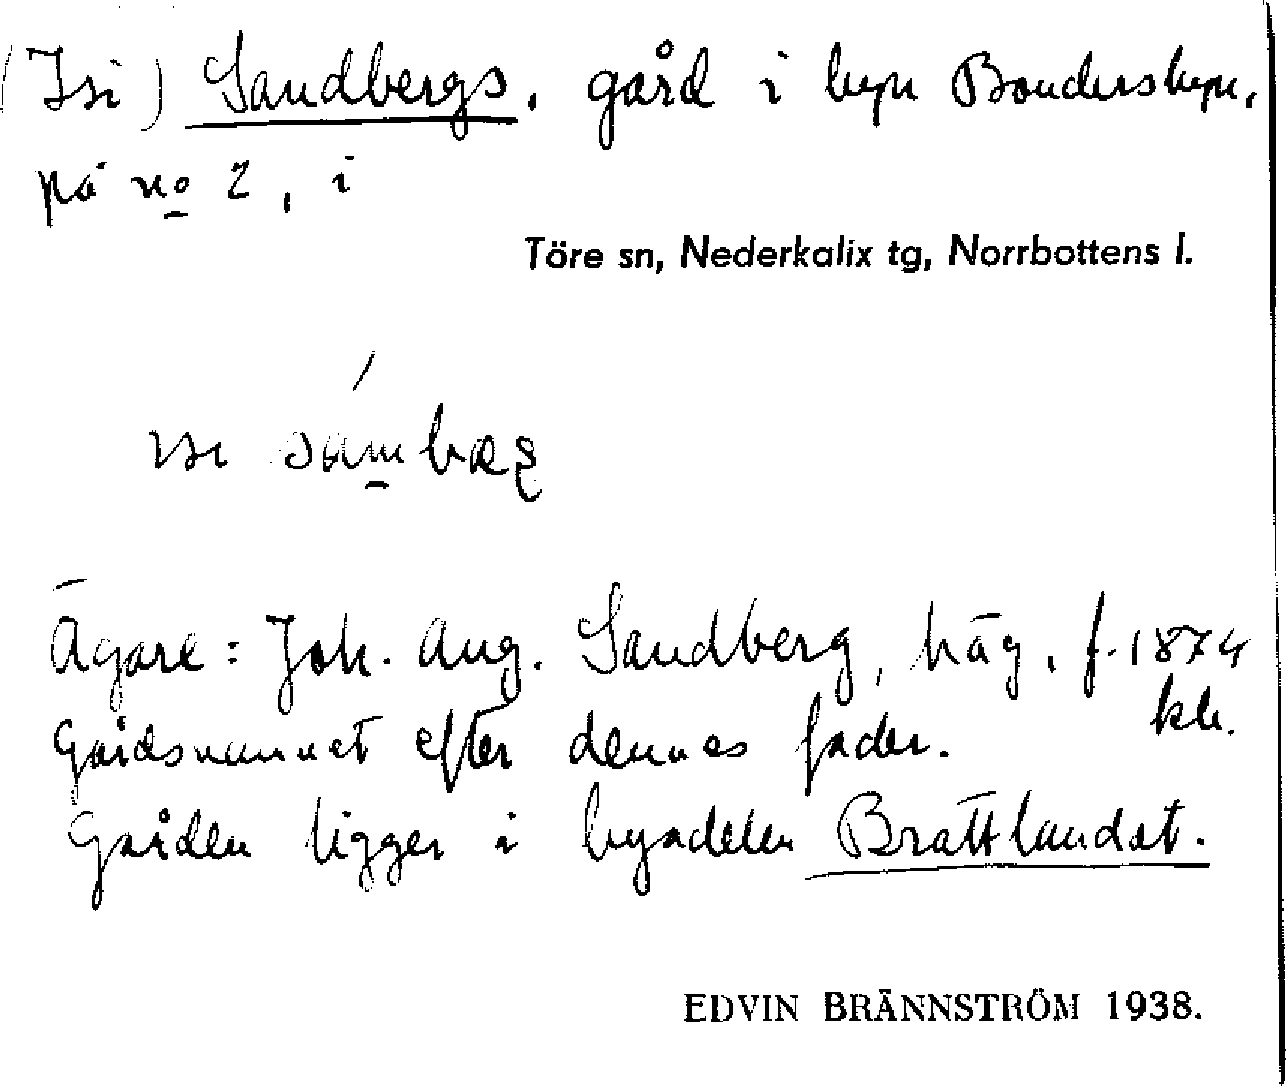 (Isi) Sandbergs, gård i byn Bondersbyn,
på no 2, i
Töre sn, Nederkalix tg, Norrbottens l.
Ägare: Joh. Aug. Sandberg, häg, f. 1874
kle.
Gårdsnamnet efter dennes fader.
Gården ligger i byadelen Brattlandet.
EDVIN BRÄNNSTRÖM 1938.